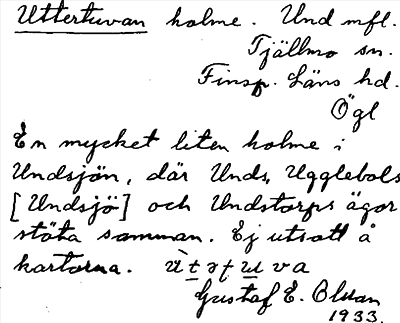 Uttertuvan holme. Und mfl.
Tjällmo sn.
Finsp. Läns hd.
Ögl
En mycket liten holme i
Undsjön, där Unds, Ugglebols
[Undsjö] och Undstorps ägor
stöta samman. Ej utsatt å
kartorna.
Gustaf E. Olsson
1933.